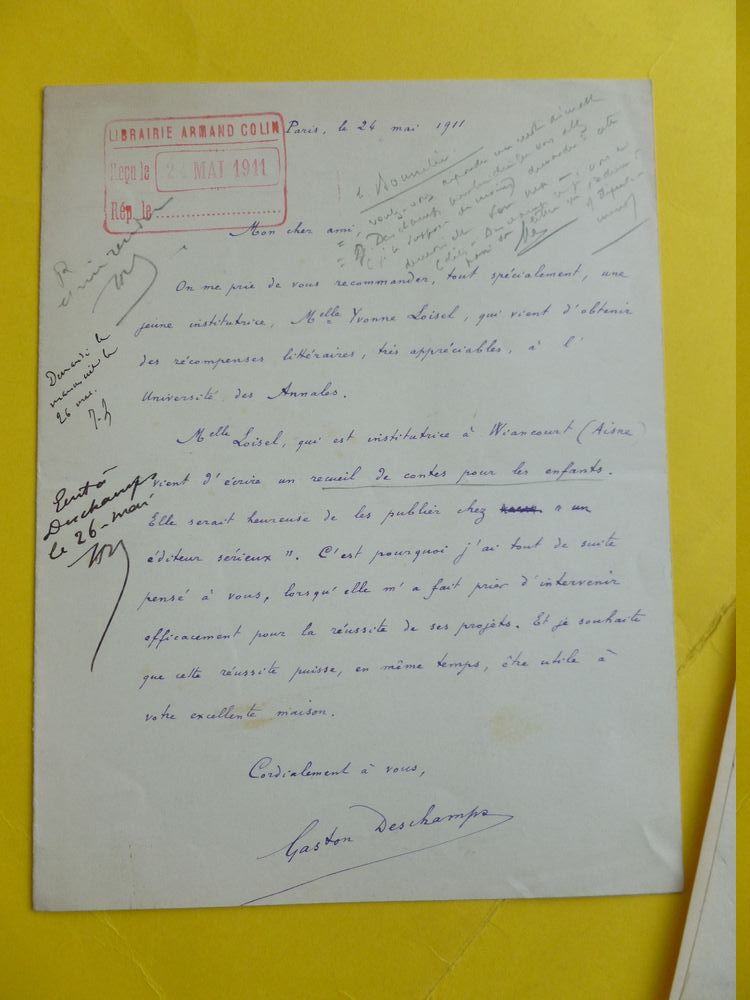 LIBRAIRIE ARMAND COLIN
Reçu le 24 MAI 1911
Rép. le
Paris, le 24 mai 1911
Mon cher ami,
On me prie de vous recommander, tout spécialement, une
jeune institutrice, Melle Yvonne Loisel, qui vient d'obtenir
des récompenses littéraires, très appréciables, à l'
Université des Annales.
Melle Loisel, qui est institutrice à Wiancourt (Aisne
vient d'écrire un recueil de contes pour les enfants.
Elle serait heureuse de les publier chez "un
éditeur sérieux". C'est pourquoi j'ai tout de suite
pensé à vous, lorsqu'elle m'a fait prier d'intervenir
efficacement pour la réussite de ses projets. Et je souhaite
que cette réussite puisse, en même temps, être utile à
votre excellente maison.
Cordialement à vous,
Gaston Deschamps
Demandé le
manuscrit le
26 mai.
Ecrit à
Deschamps
le 26 mai